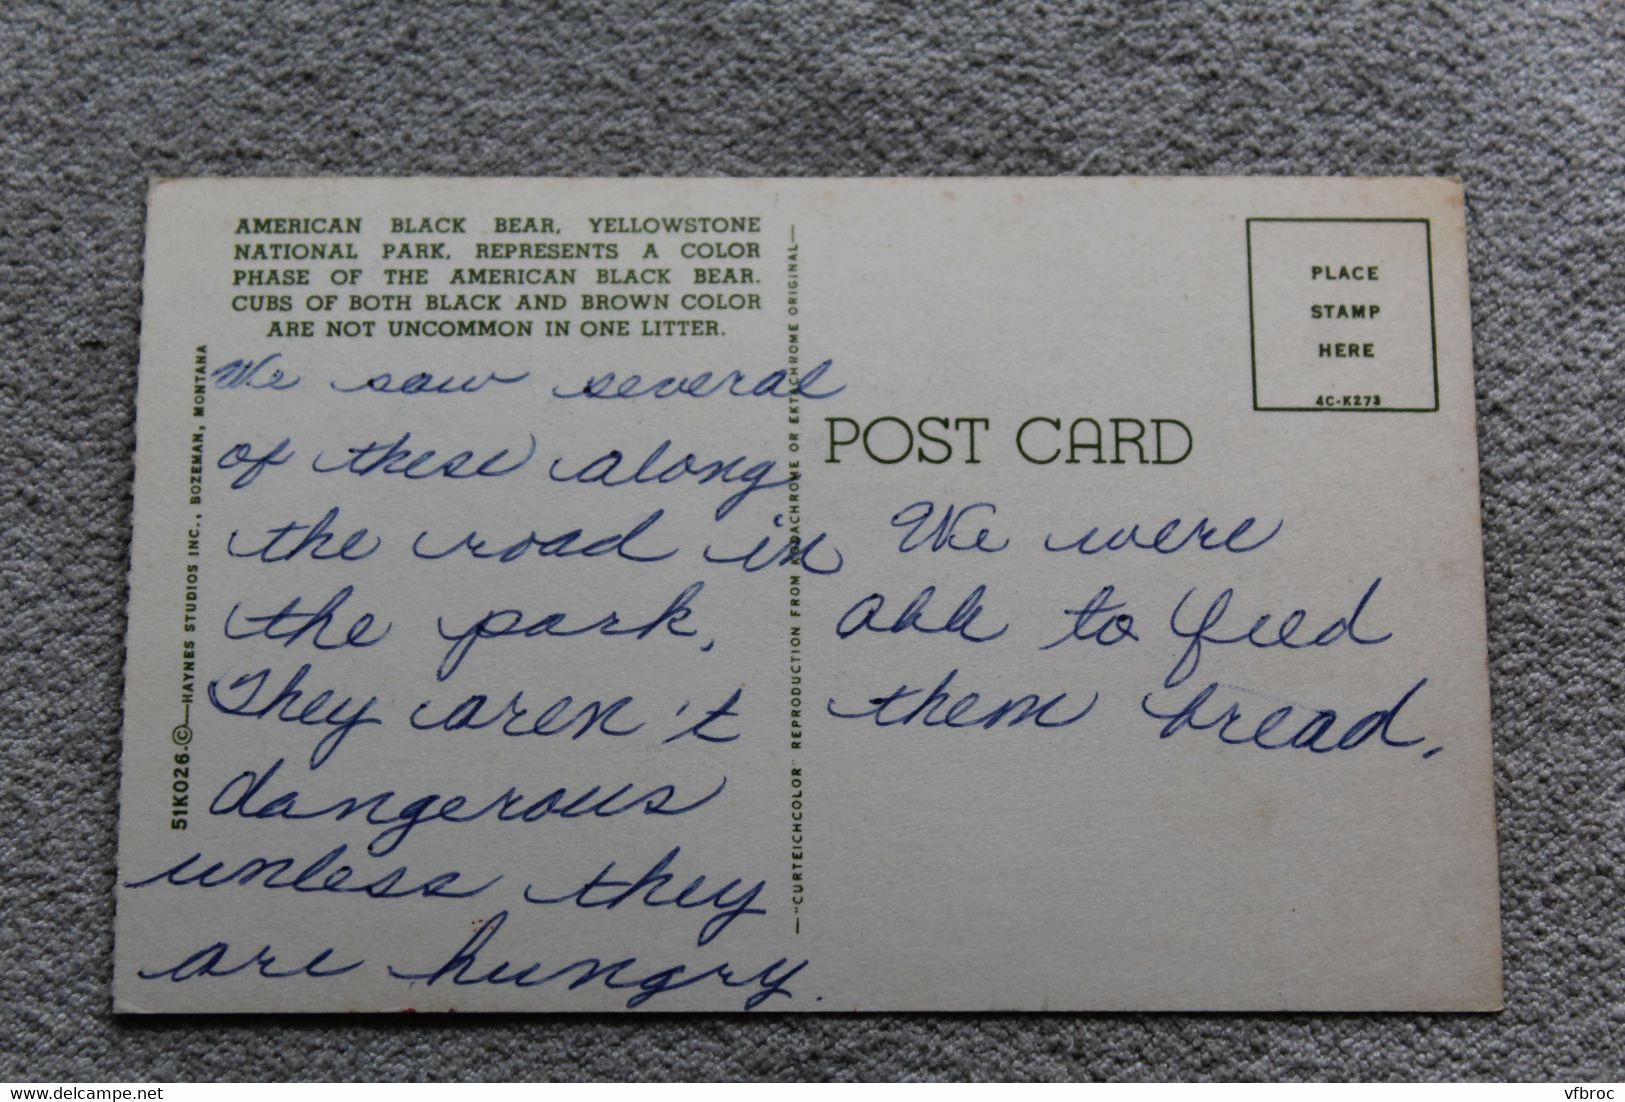 AMERICAN BLACK BEAR, YELLOWSTONE
NATIONAL PARK, REPRESENTS A COLOR
PHASE OF THE AMERICAN BLACK BEAR.
CUBS OF BOTH BLACK AND BROWN COLOR
ARE NOT UNCOMMON IN ONE LITTER.
We saw several
of these along
the road in
the park.
They aren't
dangerous
unless they
are hungry.
51K026-©—HAYNES STUDIOS INC., BOZEMAN, MONTANA
—"CURTEICHCOLOR" REPRODUCTION FROM KODACHROME OR EKTACHROME ORIGINAL—
PLACE
STAMP
HERE
4C-K273
POST CARD
We were
able to feed
them bread.
vfbroc